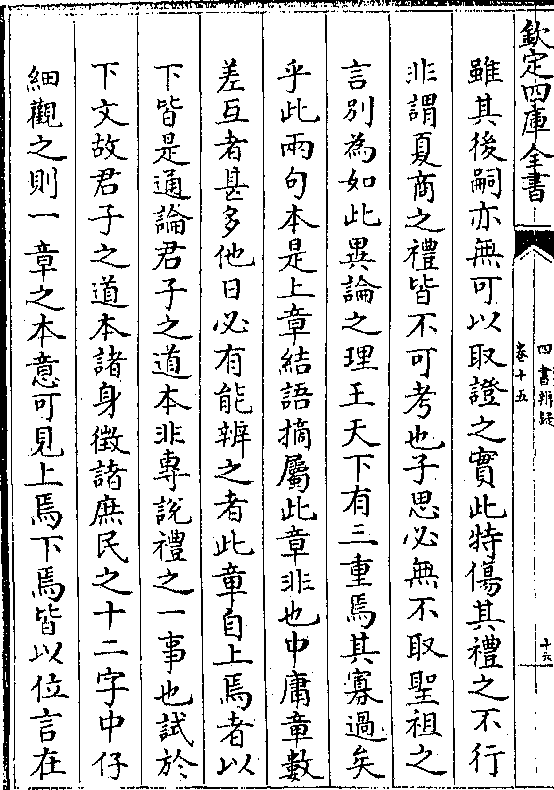 欽定四庫全書
四書辨疑
卷十五
十六
雖其後嗣亦無可以取證之實此特傷其禮之不行
非謂夏商之禮皆不可考也子思必無不取聖祖之
言別為如此異論之理王天下有三重焉其寡過矣
乎此兩句本是上章結語摘屬此章非也中庸章數
差互者甚多他日必有能辨之者此章自上焉者以
下皆是通論君子之道本非專說禮之一事也試於
下文故君子之道本諸身徵諸庶民之十二字中仔
細觀之則一章之本意可見上焉下焉皆以位言在